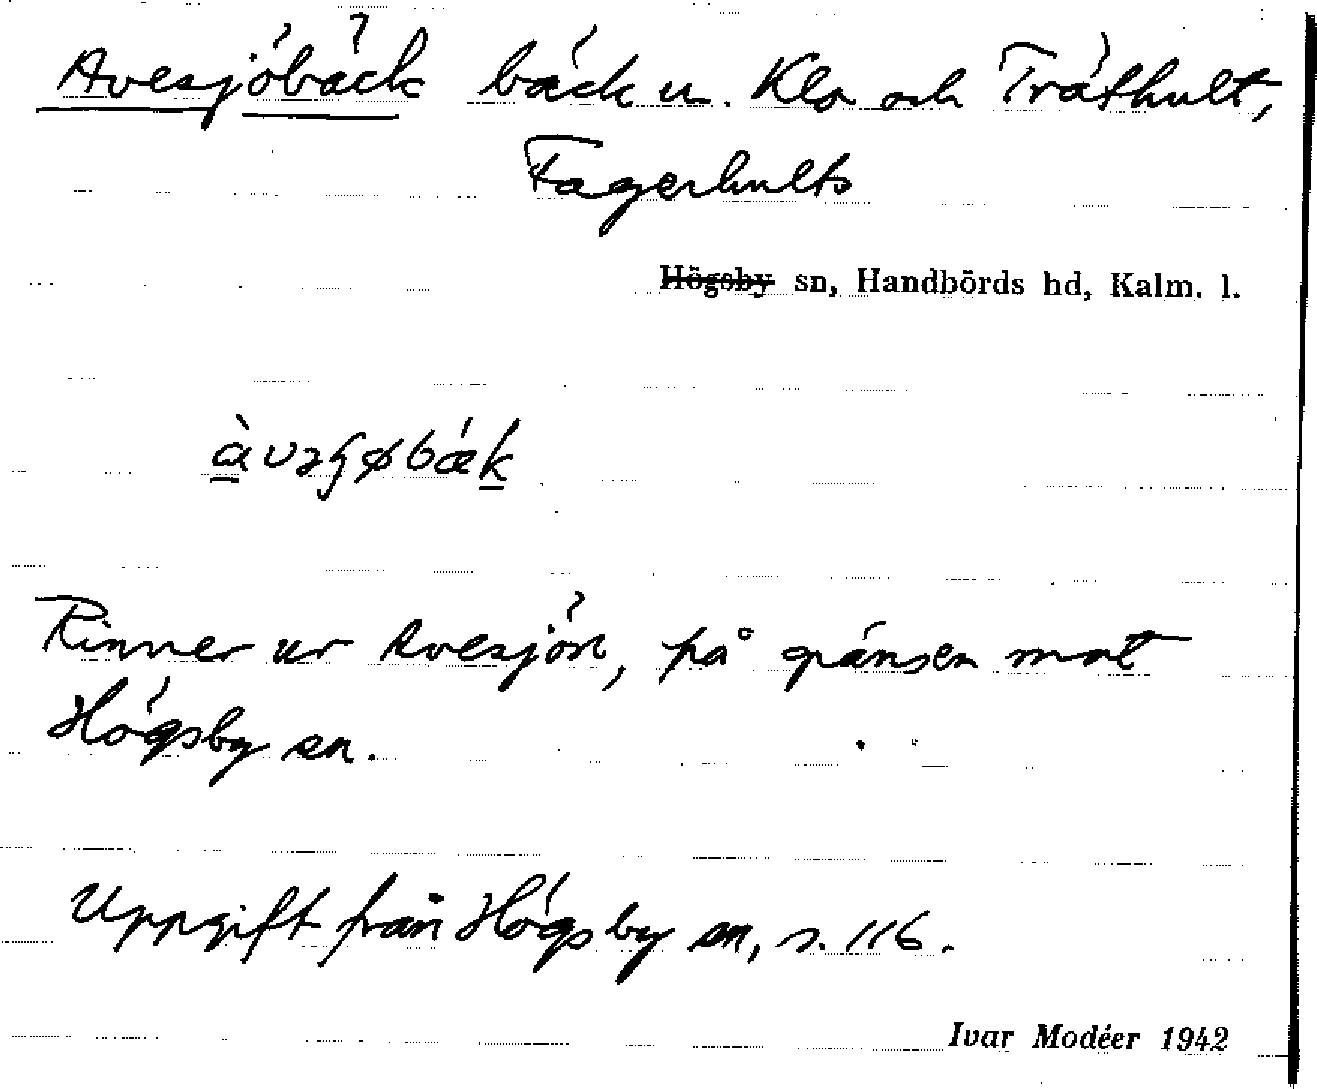 Avesjöbäck bäck u. Klo och Träthult,
Fagerhults
Högsby sn, Handbörds hd, Kalm. l.
Rinner ur Avesjön, på gränsen mot
Högsby sn.
Uppgift från Högsby sn, s. 116.
Ivar Modéer 1942